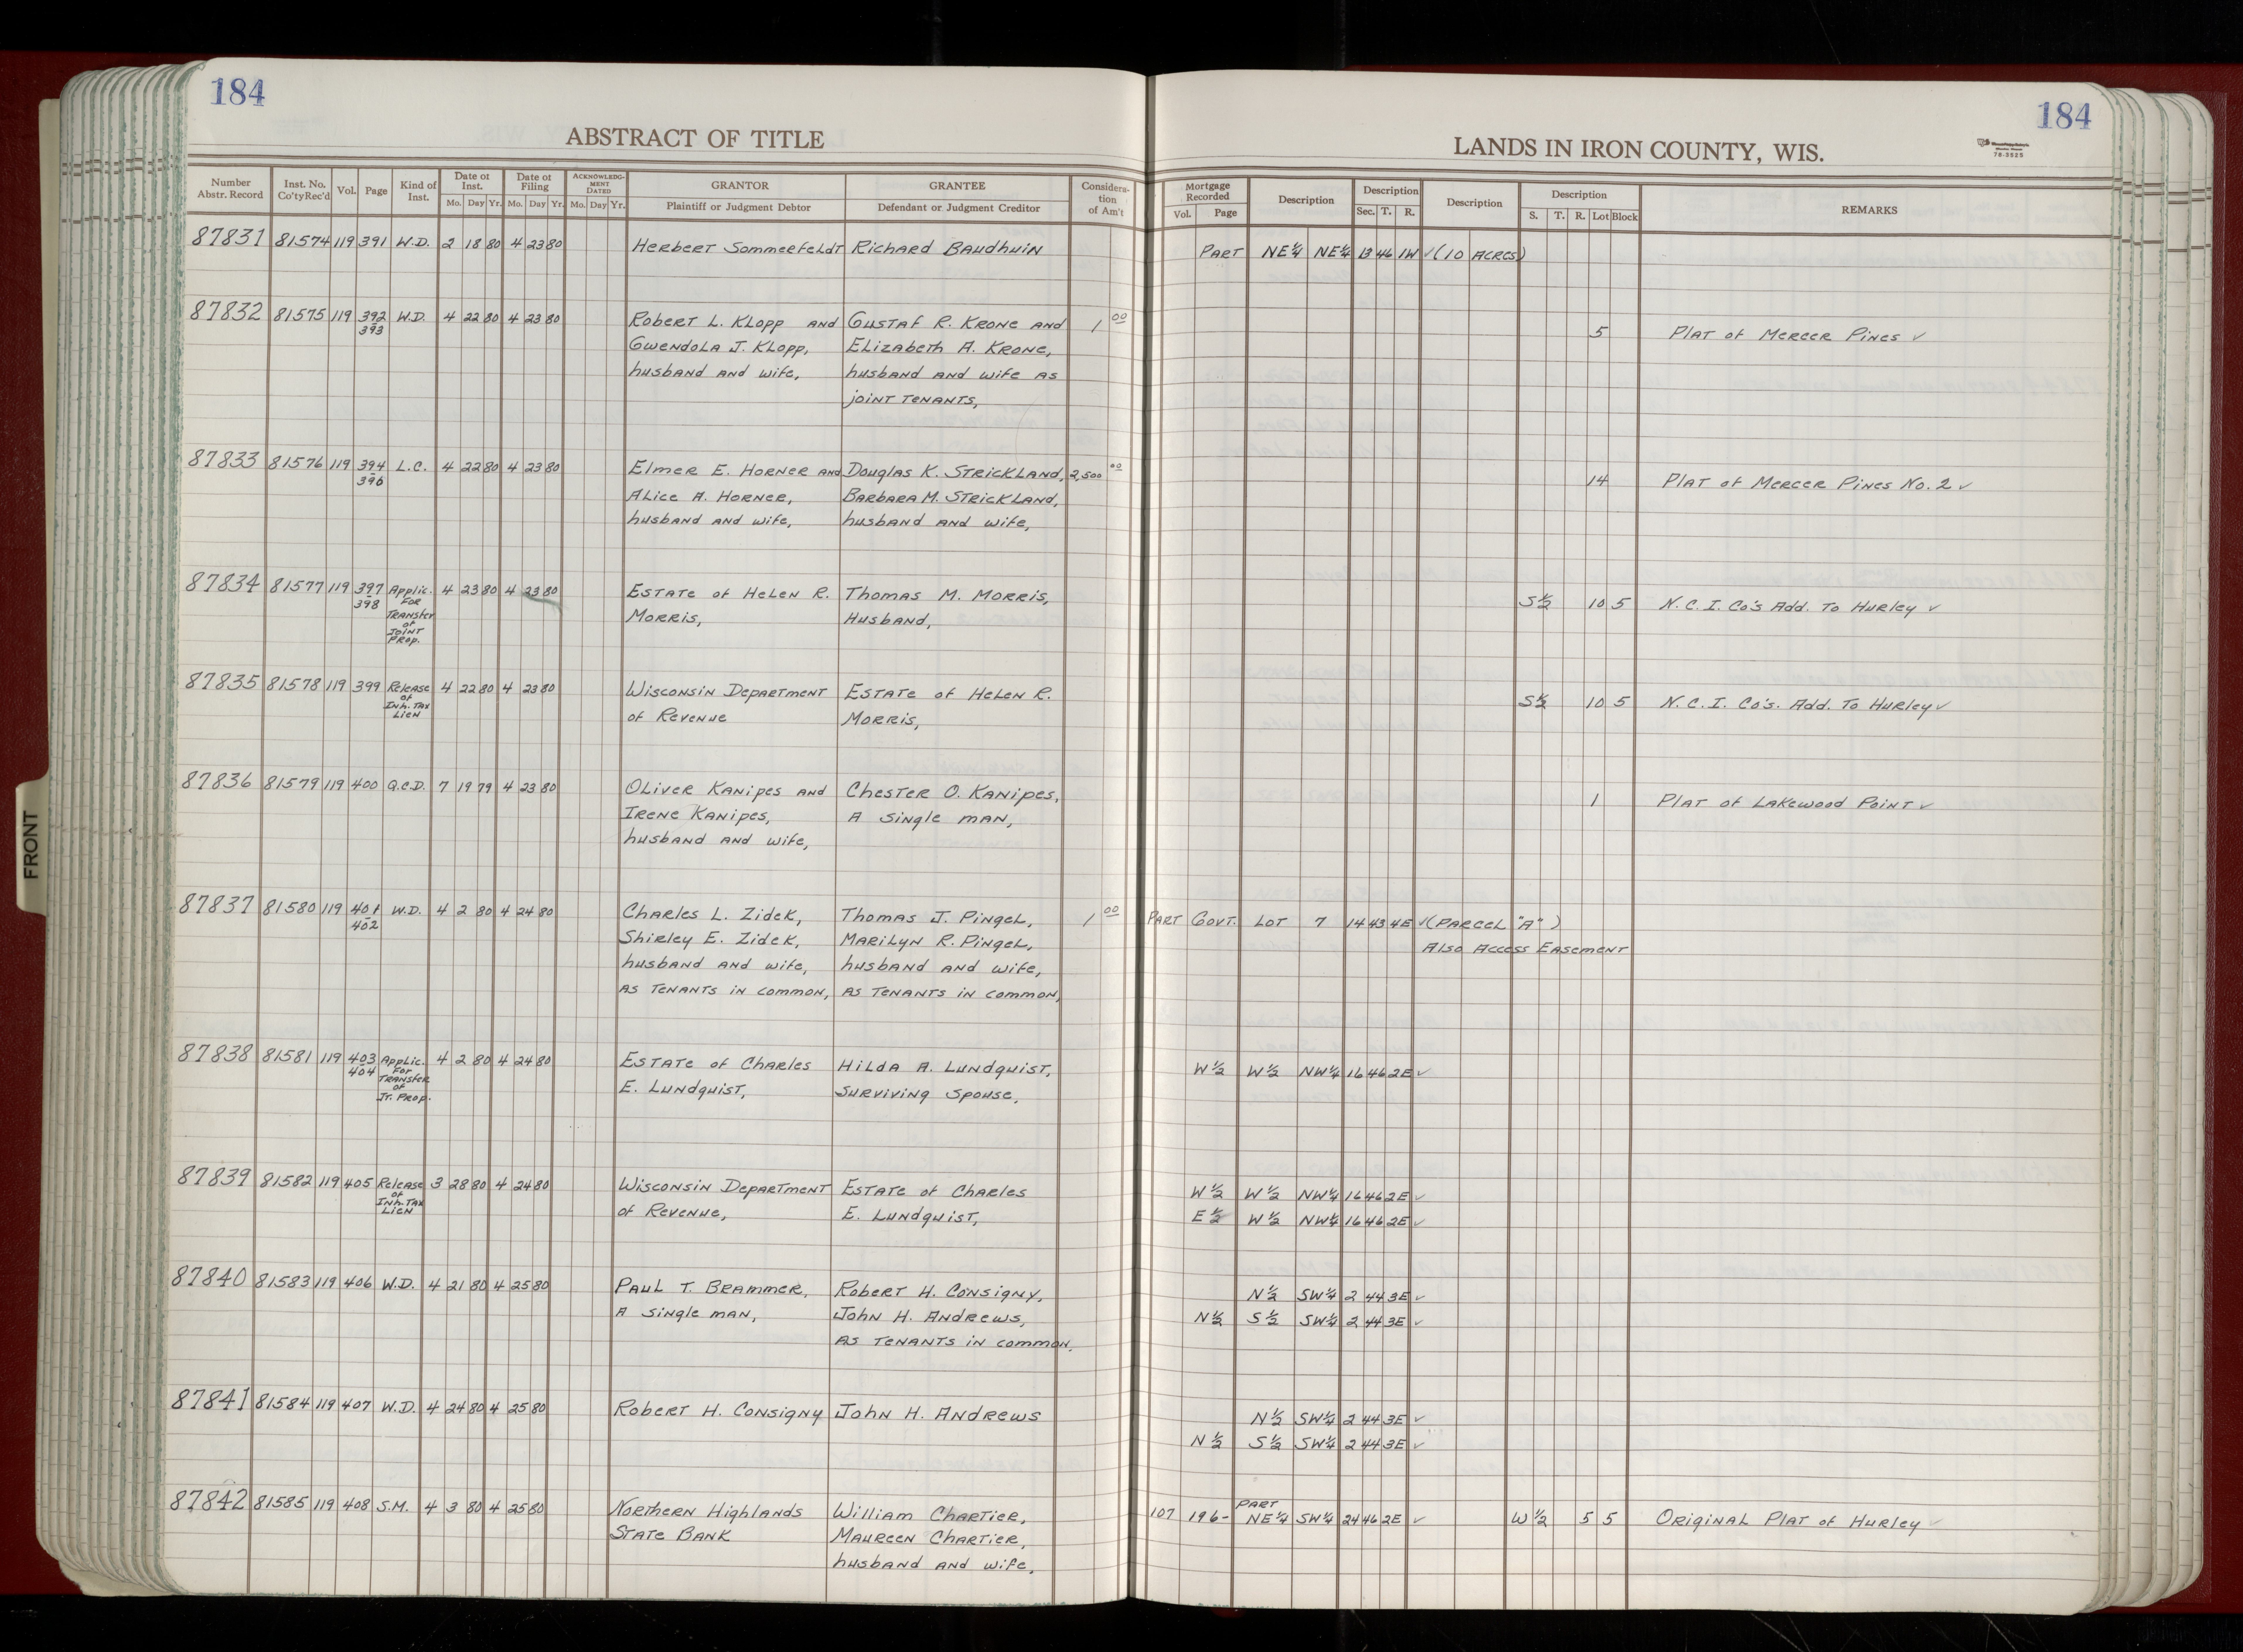 184
184
ABSTRACT OF TITLE
LANDS IN IRON COUNTY, WIS.
78-3525
Number Abstr. Record Inst. No. Co'ty Rec'd Vol. Page Kind of Inst. Date of Inst. Mo. Day Yr. Date of Filing Mo. Day Yr. ACKNOWLEDGMENT DATED Mo. Day Yr. GRANTOR Plaintiff or Judgment Debtor GRANTEE Defendant or Judgment Creditor Consideration of Am't Mortgage Recorded Vol. Page Description Description Sec. T. R. Description Description S. T. R. Lot Block REMARKS
87831 81574 119 391 W.D. 2 18 80 4 23 80 Herbert Sommerfeldt Richard Baudhuin Part NE¼ NE¼ 13 46 1W ✓ (10 Acres)
87832 81575 119 392 W.D. 4 22 80 4 23 80 Robert L. Klopp and Gustaf R. Krone and 1 00 5 Plat of Mercer Pines ✓
393 Gwendola J. Klopp, Elizabeth A. Krone,
husband and wife, husband and wife as
joint tenants,
87833 81576 119 394 L.C. 4 22 80 4 23 80 Elmer E. Horner and Douglas K. Strickland, 2,500 00 14 Plat of Mercer Pines No. 2 ✓
396 Alice A. Horner, Barbara M. Strickland,
husband and wife, husband and wife,
87834 81577 119 397 Applic. 4 23 80 4 23 80 Estate of Helen R. Thomas M. Morris, S½ 10 5 N.C.I. Co's Add. To Hurley ✓
398 For Transfer of Joint Prop. Morris, Husband,
87835 81578 119 399 Release 4 22 80 4 23 80 Wisconsin Department Estate of Helen R. S½ 10 5 N.C.I. Co's. Add. To Hurley ✓
of Inh. Tax Lien of Revenue Morris,
87836 81579 119 400 Q.C.D. 7 19 79 4 23 80 Oliver Kanipes and Chester O. Kanipes, 1 Plat of Lakewood Point ✓
Irene Kanipes, A single man,
husband and wife,
87837 81580 119 401 W.D. 4 2 80 4 24 80 Charles L. Zidek, Thomas J. Pingel, 1 00 Part Govt. Lot 7 14 43 4E ✓ (Parcel "A")
402 Shirley E. Zidek, Marilyn R. Pingel, Also Access Easement
husband and wife, husband and wife,
as tenants in common, as tenants in common,
87838 81581 119 403 Applic. 4 2 80 4 24 80 Estate of Charles Hilda A. Lundquist, W½ W½ NW¼ 16 46 2E ✓
404 For Transfer of Jt. Prop. E. Lundquist, Surviving Spouse,
87839 81582 119 405 Release 3 28 80 4 24 80 Wisconsin Department Estate of Charles W½ W½ NW¼ 16 46 2E ✓
of Inh. Tax Lien of Revenue, E. Lundquist, E½ W½ NW¼ 16 46 2E ✓
87840 81583 119 406 W.D. 4 21 80 4 25 80 Paul T. Brammer, Robert H. Consigny, N½ SW¼ 2 44 3E ✓
A single man, John H. Andrews, N½ S½ SW¼ 2 44 3E ✓
as tenants in common,
87841 81584 119 407 W.D. 4 24 80 4 25 80 Robert H. Consigny John H. Andrews N½ SW¼ 2 44 3E ✓
N½ S½ SW¼ 2 44 3E ✓
87842 81585 119 408 S.M. 4 3 80 4 25 80 Northern Highlands William Chartier, 107 196- Part NE¼ SW¼ 24 46 2E ✓ W½ 5 5 Original Plat of Hurley ✓
State Bank Maureen Chartier,
husband and wife,
FRONT